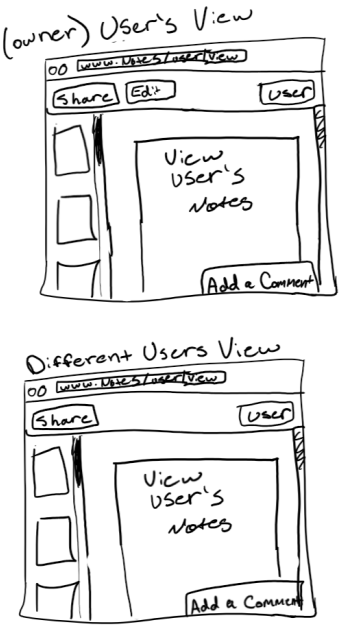 (owner) User's View
www.Notes/user/view
Share Edit User
View
User's
Notes
Add a Comment
Different Users View
www.Notes/user/view
Share User
View
User's
Notes
Add a Comment